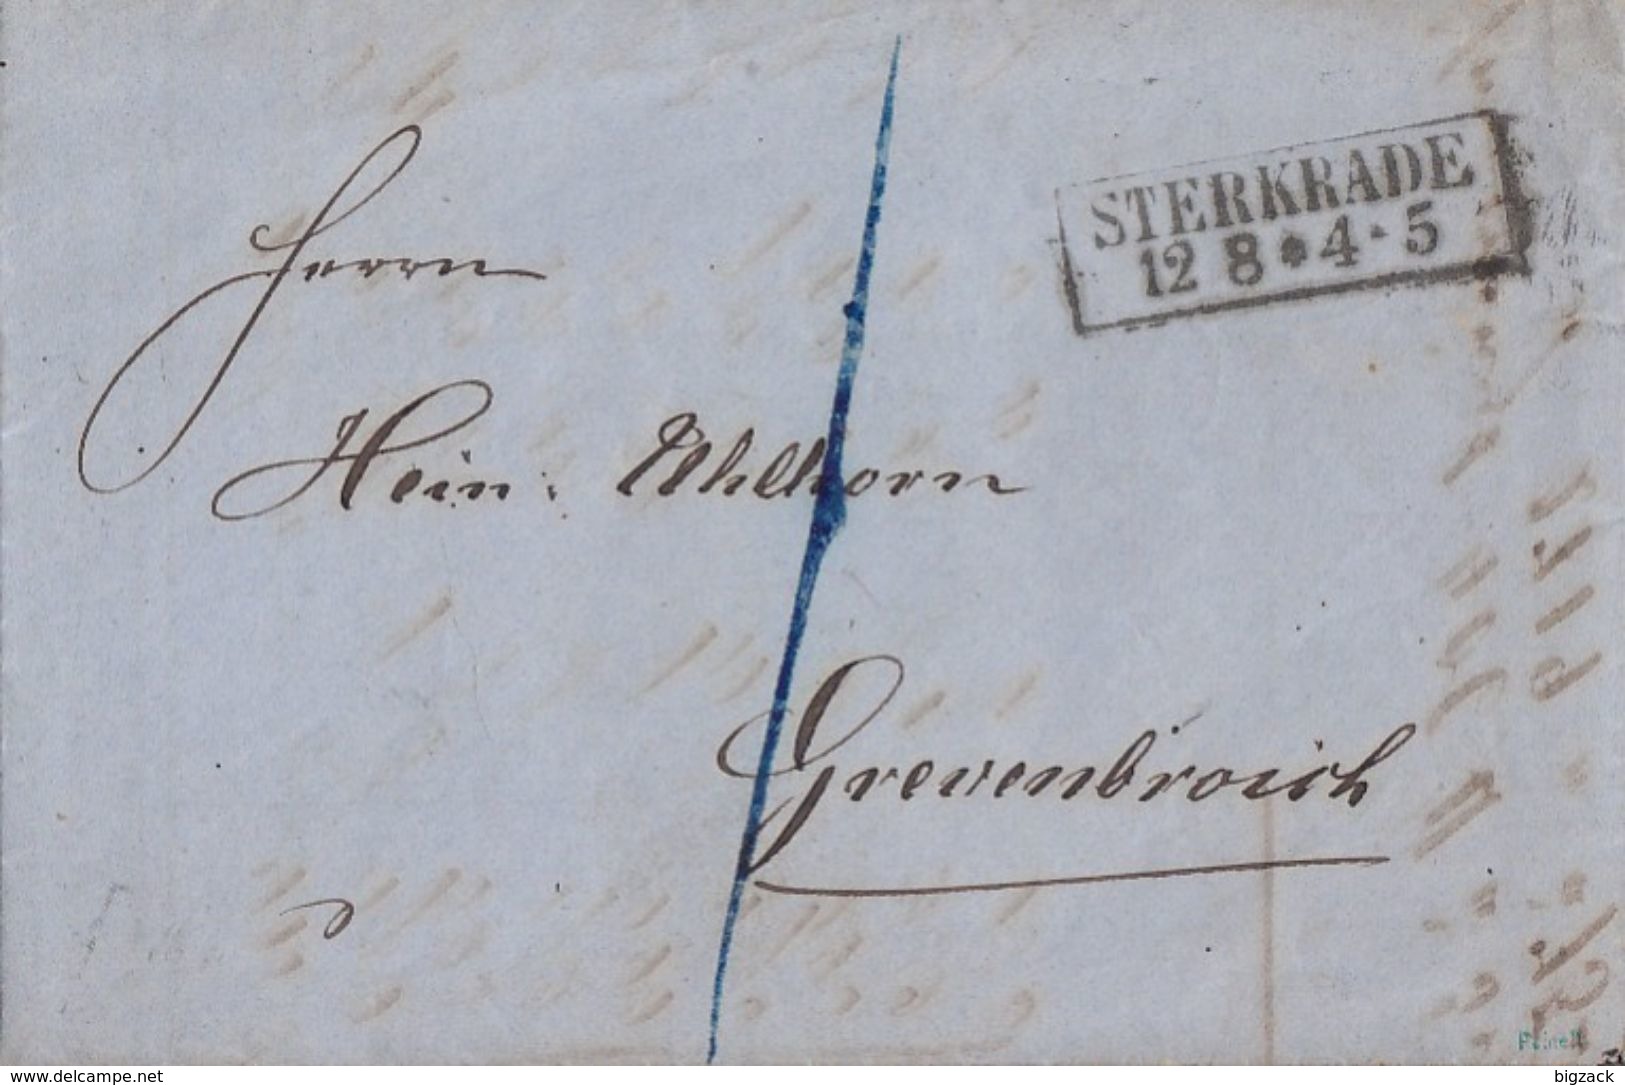 STERKRADE
12 8 * 4 - 5
Herrn
Hein: Uhlhorn
Grevenbroich
www.delcampe.net
bigzack